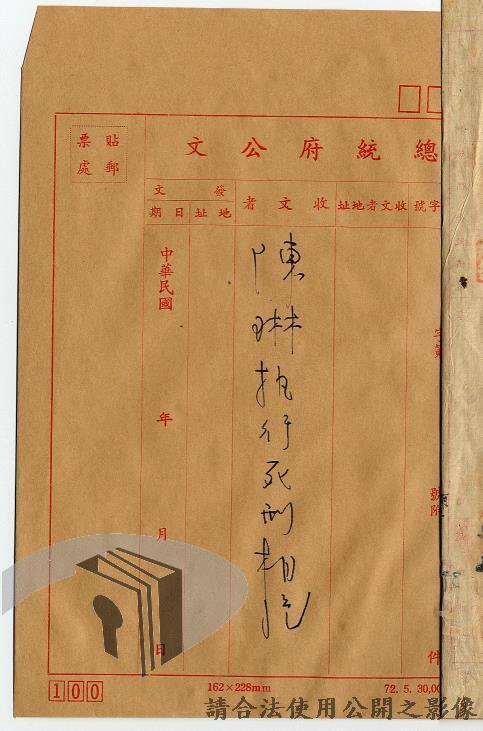 貼郵
票處
總統府公文
字號
收文者地址
收文者
發文
地址
日期
字第
號附
件
陳琳執行死刑相片
中華民國
年
月
日
100
162×228mm
72. 5. 30,00
請合法使用公開之影像